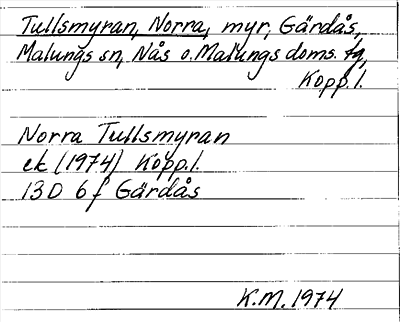 Tullsmyran, Norra, myr, Gärdås,
Malungs sn, Nås o. Malungs doms. tg,
Kopp.l.
Norra Tullsmyran
ek (1974) Kopp.l.
13D 6f Gärdås
K.M. 1974